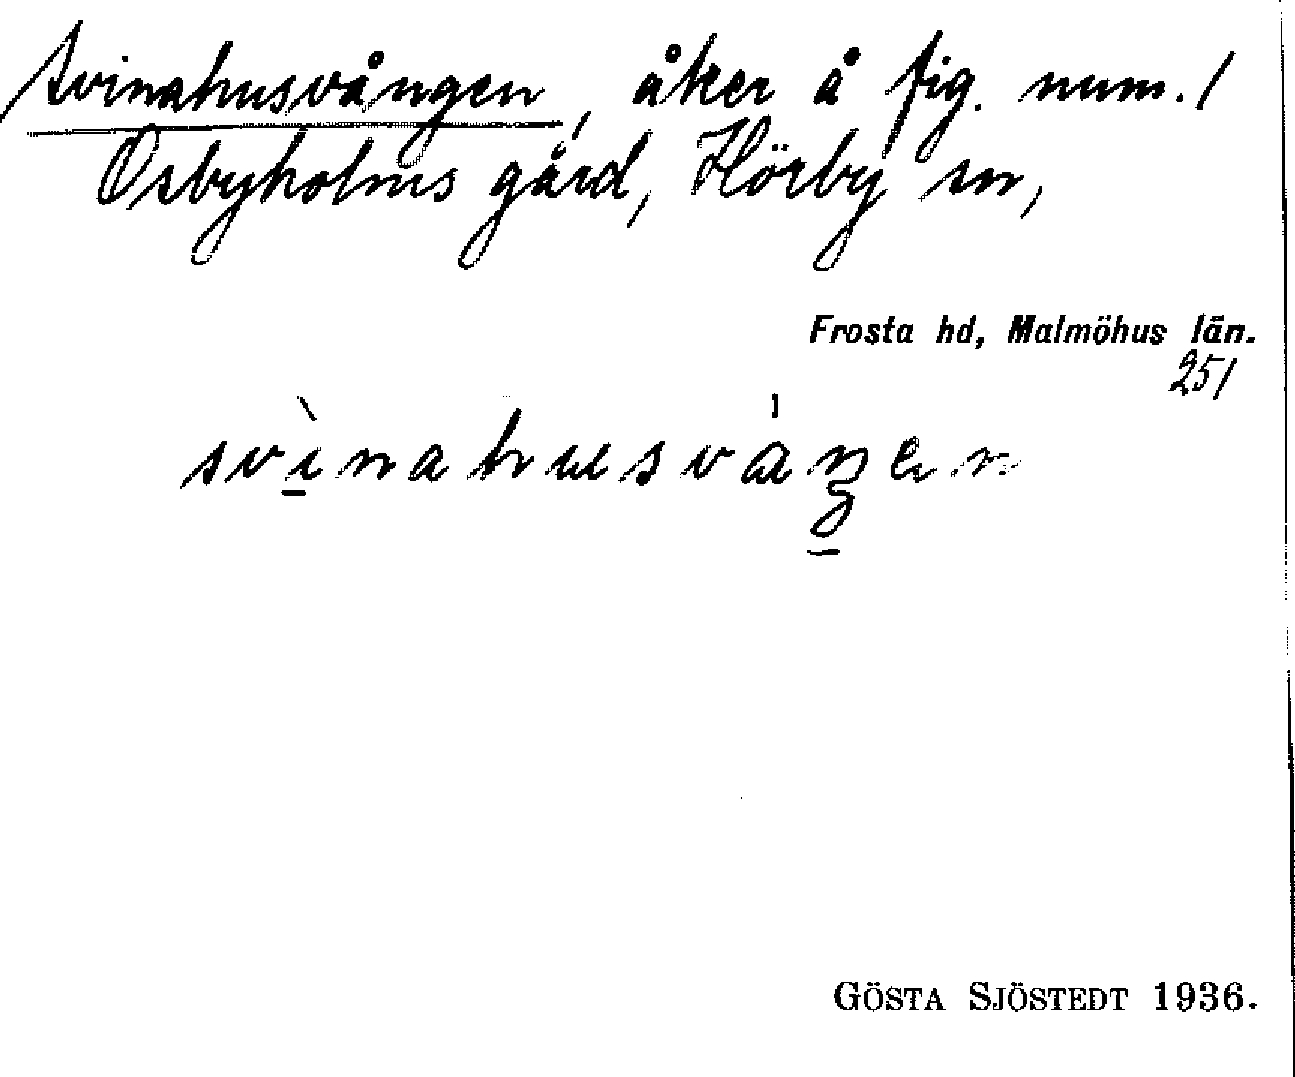 Svinahusvången, åker å fig. num. 1
Osbyholms gård, Hörby sn,
Frosta hd, Malmöhus län.
251
svìnahusvåŋen
GÖSTA SJÖSTEDT 1936.